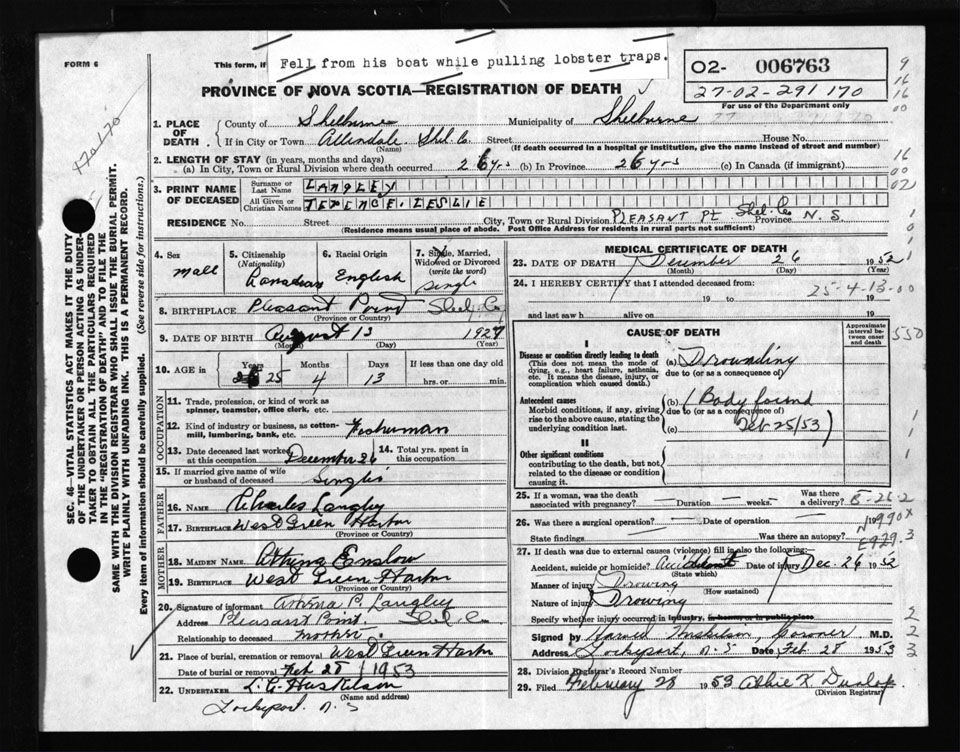 FORM 6
This form, if
Fell from his boat while pulling lobster traps.
02- 006763
27-02-291 170
For use of the Department only
PROVINCE OF NOVA SCOTIA—REGISTRATION OF DEATH
1. PLACE OF DEATH
County of Shelburne Municipality of Shelburne
If in City or Town Allendale Shel. Co. Street House No.
(Name) (If death occurred in a hospital or institution, give the name instead of street and number)
2. LENGTH OF STAY (in years, months and days)
(a) In City, Town or Rural Division where death occurred 26 yrs (b) In Province 26 yrs (c) In Canada (if immigrant)
3. PRINT NAME OF DECEASED
Surname or Last Name LANGLEY
All Given or Christian Names TERENCE LESLIE
RESIDENCE No. Street City, Town or Rural Division PLEASANT PT Shel. Co N.S
(Residence means usual place of abode. Post Office Address for residents in rural parts not sufficient)
4. Sex
Male
5. Citizenship
(Nationality)
Canadian
6. Racial Origin
English
7. Single, Married, Widowed or Divorced
(write the word)
Single
8. BIRTHPLACE Pleasant Point Shel. Co
(Province or Country)
9. DATE OF BIRTH August 13 1927
(Month) (Day) (Year)
10. AGE in Years Months Days If less than one day
25 4 13 hrs. or min.
OCCUPATION
11. Trade, profession, or kind of work as spinner, teamster, office clerk, etc.
12. Kind of industry or business, as cotten-mill, lumbering, bank, etc. Fisherman
13. Date deceased last worked at this occupation December 26
14. Total yrs. spent in this occupation
15. If married give name of wife or husband of deceased Single
FATHER
16. NAME Charles Langley
17. BIRTHPLACE West Green Harbor
(Province or Country)
MOTHER
18. MAIDEN NAME Athina Enslow
19. BIRTHPLACE West Green Harbor
(Province or Country)
20. Signature of informant P. Langley
Address Pleasant Point. Shel Co
Relationship to deceased mother.
21. Place of burial, cremation or removal West Green Harbor
Date of burial or removal Feb 28 1953
22. UNDERTAKER L. C. Huskilson
(Name and address)
Lockeport. N. S
MEDICAL CERTIFICATE OF DEATH
23. DATE OF DEATH December 26 1952
(Month) (Day) (Year)
24. I HEREBY CERTIFY that I attended deceased from:
25-4-13-00
19 to 19
and last saw h alive on 19
CAUSE OF DEATH
Approximate interval between onset and death
550
I
Disease or condition directly leading to death
(This does not mean the mode of dying, e.g., heart failure, asthenia, etc. It means the disease, injury, or complication which caused death.)
(a) Drownding
due to (or as a consequence of)
Antecedent causes
Morbid conditions, if any, giving rise to the above cause, stating the underlying condition last.
(b) (Body found
due to (or as a consequence of)
(c) Feb 25/53)
II
Other significant conditions
contributing to the death, but not related to the disease or condition causing it.
25. If a woman, was the death associated with pregnancy? Duration weeks Was there a delivery?
8-26-2
26. Was there a surgical operation? Date of operation
State findings Was there an autopsy?
N990X
E929.3
27. If death was due to external causes (violence) fill in also the following:
Accident, suicide or homicide? Accident Date of injury Dec. 26 1952
(State which)
Manner of injury Drowing
(How sustained)
Nature of injury Drowing
Specify whether injury occurred in industry, in home or in public place
Signed by Huskilson, Coroner M.D.
Address Lockeport, N. S Date Feb 28 1953
28. Division Registrar's Record Number
29. Filed February 28 1953 Albie K. Dunlop
(Division Registrar)
SEC. 46—VITAL STATISTICS ACT MAKES IT THE DUTY OF THE UNDERTAKER OR PERSON ACTING AS UNDERTAKER TO OBTAIN ALL THE PARTICULARS REQUIRED IN THE "REGISTRATION OF DEATH" AND TO FILE THE SAME WITH THE DIVISION REGISTRAR WHO SHALL ISSUE THE BURIAL PERMIT.
WRITE PLAINLY WITH UNFADING INK. THIS IS A PERMANENT RECORD.
Every item of information should be carefully supplied. (See reverse side for instructions.)